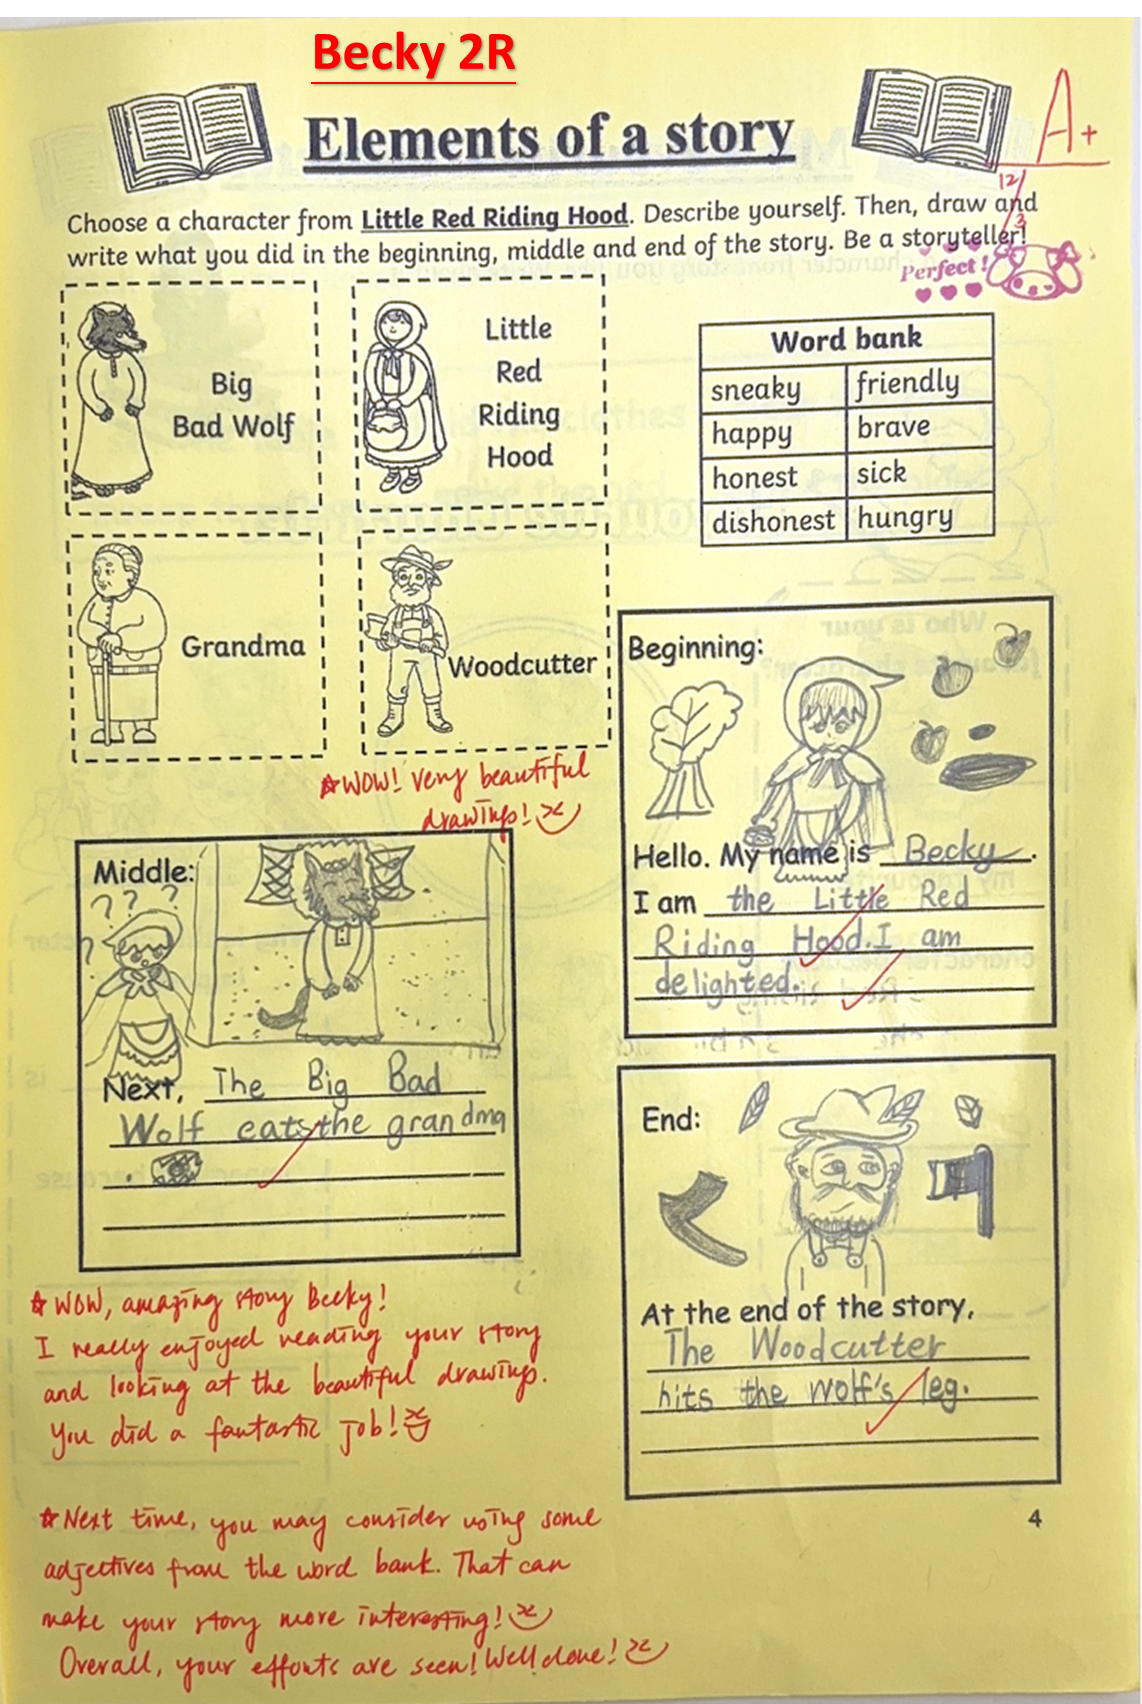 Becky 2R
Elements of a story
A+
12/3
Choose a character from Little Red Riding Hood. Describe yourself. Then, draw and
write what you did in the beginning, middle and end of the story. Be a storyteller!
Perfect!
Big
Bad Wolf
Little
Red
Riding
Hood
Word bank
sneaky friendly
happy brave
honest sick
dishonest hungry
Grandma
Woodcutter
WOW! Very beautiful
drawings!
Beginning:
Hello. My name is Becky.
I am the Little Red
Riding Hood. I am
delighted.
Middle:
? ? ?
?
Next, The Big Bad
Wolf eats the grandma
.
End:
At the end of the story,
The Woodcutter
hits the wolf's leg.
WOW, amazing story Becky!
I really enjoyed reading your story
and looking at the beautiful drawings.
You did a fantastic job!
Next time, you may consider using some
adjectives from the word bank. That can
make your story more interesting!
Overall, your efforts are seen! Well done!
4